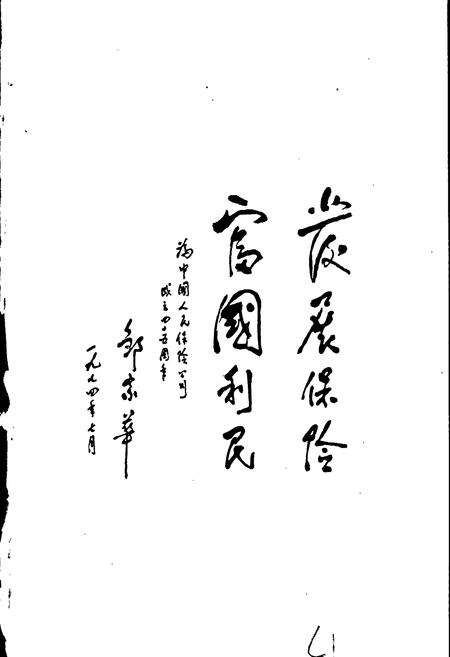 發展保险
富國利民
為中國人民保险公司
成立四十五周年
邹家华
一九九四年七月